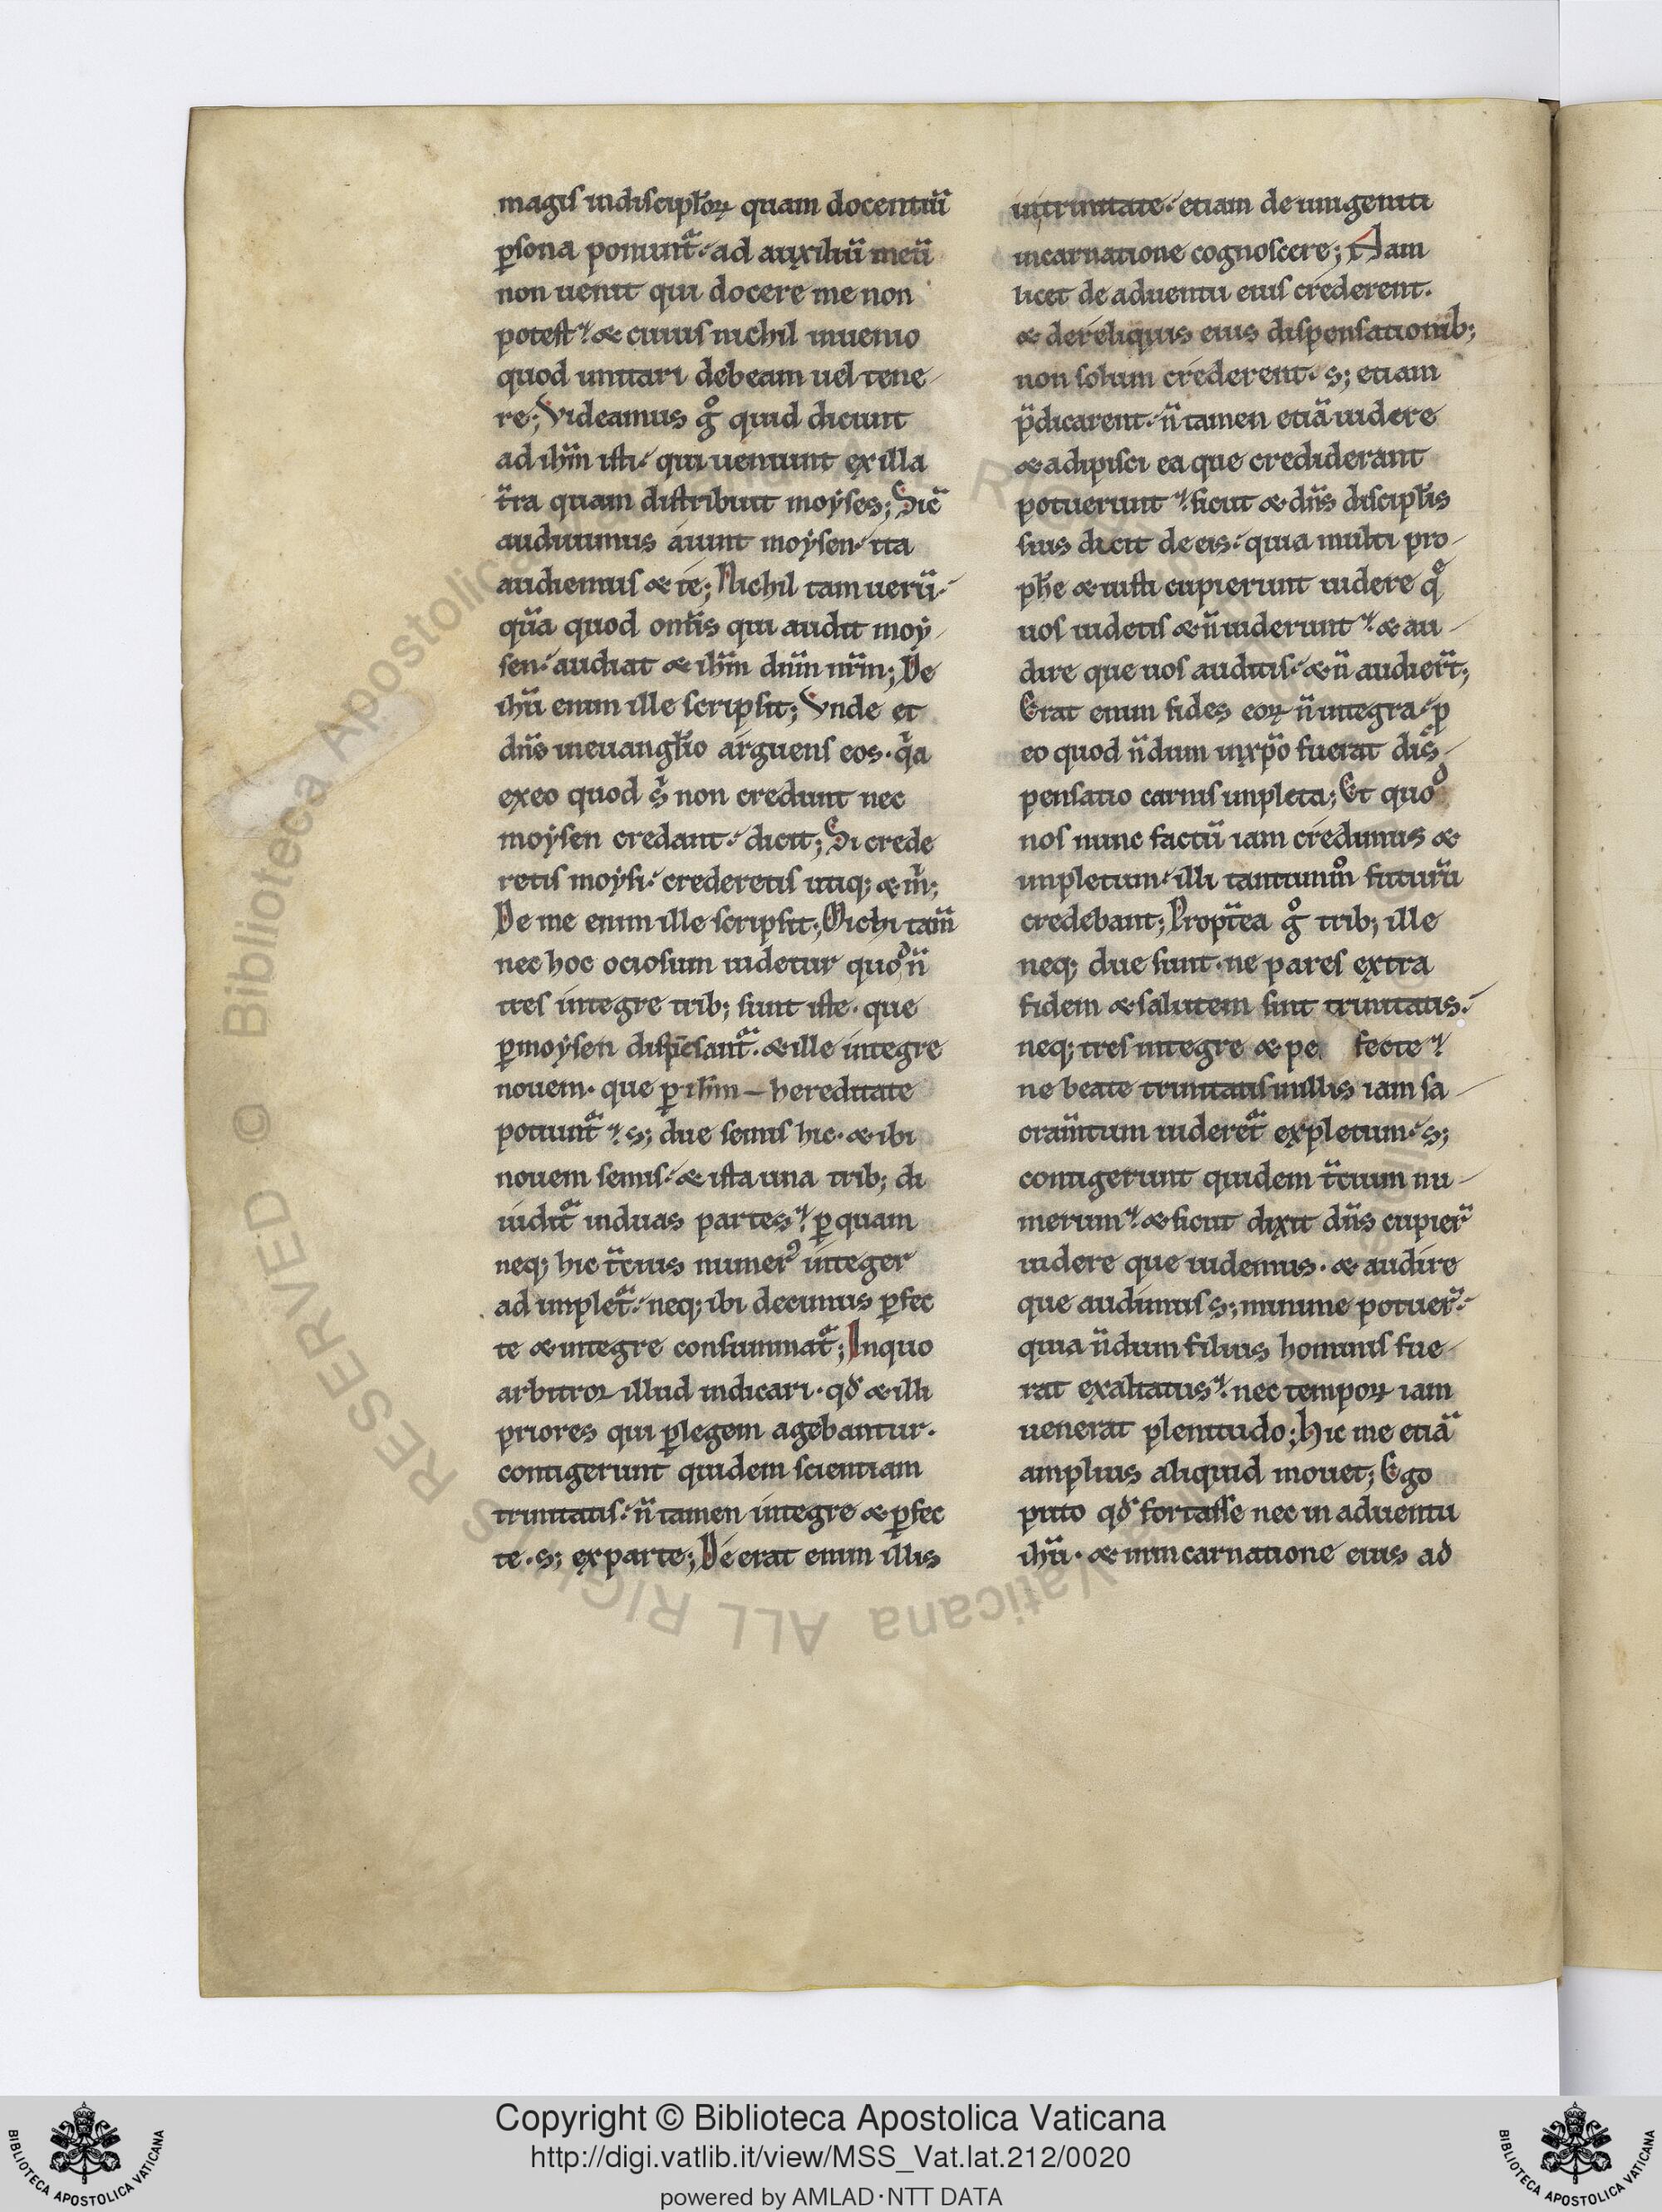 magis indiscipl̄oꝝ quam docentiū
ꝑsona ponunt᷑ ad auxiliū meū
non uenit qui docere me non
potest ⁊ cuius nichil inuenio
quod imitari debeam uel tene-
re; Videamus gͦ quid dicunt
ad ih̄m isti qui ueniunt ex illa
t̄ra quam distribuit moẏses; Sic̄
audiuimus aiunt moẏsen ita
audiemus ⁊ te; Nichil tam uerū
qūa quod om̄is qui audit moẏ-
sen audiat ⁊ ih̄m dn̄m nr̄m; De
ih̄u enim ille scripsit; Vnde et
dn̄s ineuangl̄io arguens eos. qͣa
exeo quod sͥ non credunt nec
moẏsen credant dicit; Si crede
retis moẏsi crederetis utiq; ⁊ mͥ;
De me enim ille scripsit; Michi tam̄
nec hoc ociosum uidetur quoᵒ n̄
tres integre trib; sunt iste. que
ꝑmoẏsen dispēsant᷑. ⁊ ille integre
nouem. que ꝑ ih̄m — hereditate
potiunt᷑ s; due semis hic. ⁊ ibi
nouem semis ⁊ ista una trib; di
uidit᷑ induas partes ꝑ quam
neq; hic t̄cius numerꝰ integer
ad implet᷑ neq; ibi decimus ꝑfec
te ⁊ integre consummat᷑; Inquo
arbitror illud indicari. qđ ⁊ illi
priores qui ꝑlegem agebantur.
contigerunt quidem scientiam
trinitatis n̄ tamen integre ⁊ ꝑfec
te. s; exparte; Deerat enim illis
intrinitate etiam de unigeniti
incarnatione cognoscere; Nam
licet de aduentu eius crederent.
⁊ dereliquis eius dispensationib;
non solum crederent. s; etiam
p̄dicarent. n̄ tamen etiā uidere
⁊ adipisci ea que crediderant
potuerunt sicut ⁊ dn̄s discipl̄is
suis dicit de eis quia multi pro-
ph̄e ⁊ iusti cupierunt uidere qͤ
uos uidetis ⁊ n̄ uiderunt ⁊ au-
dire que uos auditis ⁊ n̄ audier̄t;
Erat enim fides eoꝝ n̄ integra ꝓ
eo quod n̄dum inxp̄o fuerat dis-
pensatio carnis impleta; Et quoᵈ
nos nunc factū iam credimus ⁊
impletum illi tantummͦ futurū
credebant; Propt̄ea gͦ trib; ille
neq; due sunt. ne pares extra
fidem ⁊ salutem sint trinitatis.
neq; tres integre ⁊ pe fecte
ne beate trinitatis inillis iam sa-
cram̄tum uideret᷑ expletum s;
contigerunt quidem t̄cium nu-
merum ⁊ sicut dixit dn̄s cupier̄
uidere que uidemus. ⁊ audire
que audimus s; minime potuer̄
quia n̄dum filius hominis fue-
rat exaltatus nec tempoꝝ iam
uenerat plenitudo; Hic me etiā
amplius aliquid mouet; Ego
puto qđ fortasse nec in aduentu
ih̄u. ⁊ inincarnatione eius ad
Copyright © Biblioteca Apostolica Vaticana
http://digi.vatlib.it/view/MSS_Vat.lat.212/0020
powered by AMLAD·NTT DATA
BIBLIOTECA APOSTOLICA VATICANA
BIBLIOTECA APOSTOLICA VATICANA